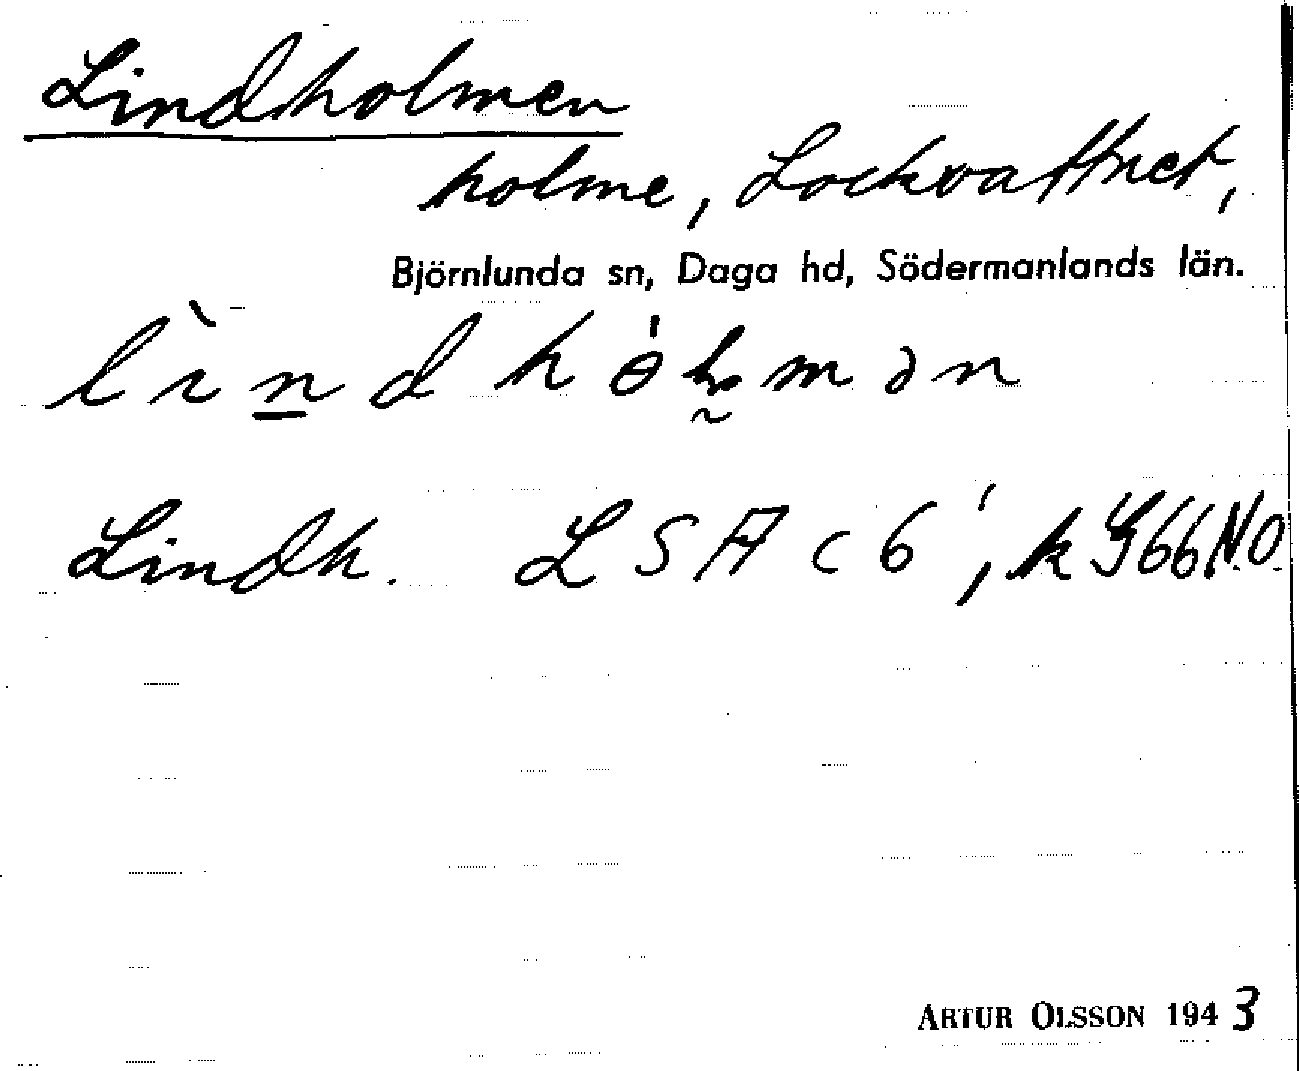 Lindholmen
holme, Lockvattnet,
Björnlunda sn, Daga hd, Södermanlands län.
Lindh. LSA c6', k
ARTUR OLSSON 1943